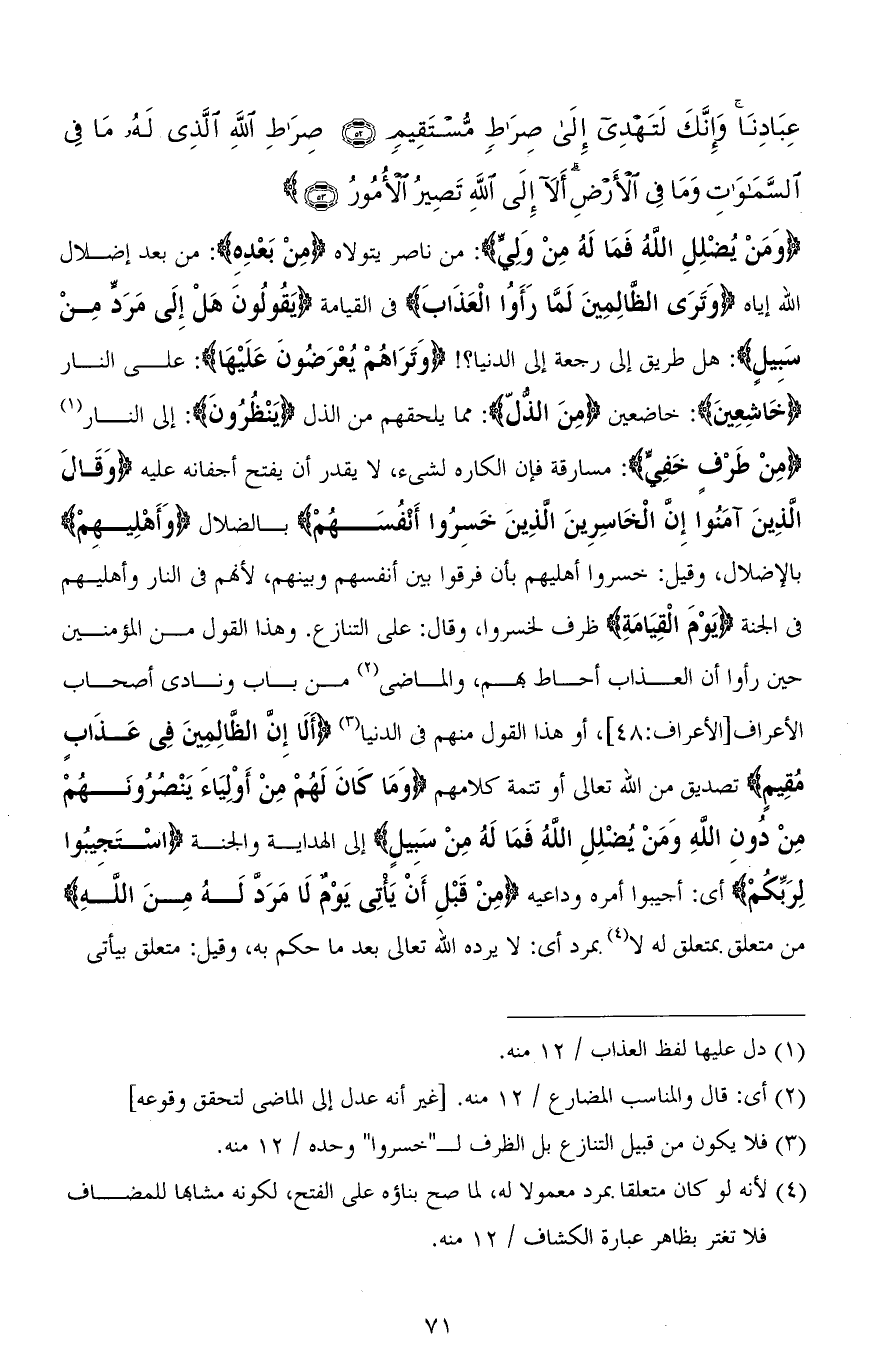 عِبَادِنَا ۚ وَإِنَّكَ لَتَهْدِىٓ إِلَىٰ صِرَٰطٍ مُّسْتَقِيمٍ ﴿٥٢﴾ صِرَٰطِ ٱللَّهِ ٱلَّذِى لَهُۥ مَا فِى
ٱلسَّمَٰوَٰتِ وَمَا فِى ٱلْأَرْضِ ۗ أَلَآ إِلَى ٱللَّهِ تَصِيرُ ٱلْأُمُورُ ﴿٥٣﴾ ﴾
﴿وَمَنْ يُضْلِلِ اللَّهُ فَمَا لَهُ مِنْ وَلِيٍّ﴾: من ناصر يتولاه ﴿مِنْ بَعْدِهِ﴾: من بعد إضلال
الله إياه ﴿وَتَرَى الظَّالِمِينَ لَمَّا رَأَوُا الْعَذَابَ﴾ فى القيامة ﴿يَقُولُونَ هَلْ إِلَى مَرَدٍّ مِنْ
سَبِيلٍ﴾: هل طريق إلى رجعة إلى الدنيا؟! ﴿وَتَرَاهُمْ يُعْرَضُونَ عَلَيْهَا﴾: على النار
﴿خَاشِعِينَ﴾: خاضعين ﴿مِنَ الذُّلِّ﴾: مما يلحقهم من الذل ﴿يَنْظُرُونَ﴾: إلى النار(١)
﴿مِنْ طَرْفٍ خَفِيٍّ﴾: مسارقة فإن الكاره لشىء، لا يقدر أن يفتح أجفانه عليه ﴿وَقَالَ
الَّذِينَ آمَنُوا إِنَّ الْخَاسِرِينَ الَّذِينَ خَسِرُوا أَنْفُسَهُمْ﴾ بالضلال ﴿وَأَهْلِيهِمْ﴾
بالإضلال، وقيل: خسروا أهليهم بأن فرقوا بين أنفسهم وبينهم، لأنهم فى النار وأهليهم
فى الجنة ﴿يَوْمَ الْقِيَامَةِ﴾ ظرف لخسروا، وقال: على التنازع. وهذا القول من المؤمنين
حين رأوا أن العذاب أحاط بهم، والماضى(٢) من باب ونادى أصحاب
الأعراف[الأعراف:٤٨]، أو هذا القول منهم فى الدنيا(٣) ﴿أَلَا إِنَّ الظَّالِمِينَ فِي عَذَابٍ
مُقِيمٍ﴾ تصديق من الله تعالى أو تتمة كلامهم ﴿وَمَا كَانَ لَهُمْ مِنْ أَوْلِيَاءَ يَنْصُرُونَهُمْ
مِنْ دُونِ اللَّهِ وَمَنْ يُضْلِلِ اللَّهُ فَمَا لَهُ مِنْ سَبِيلٍ﴾ إلى الهداية والجنة ﴿اسْتَجِيبُوا
لِرَبِّكُمْ﴾ أى: أجيبوا أمره وداعيه ﴿مِنْ قَبْلِ أَنْ يَأْتِى يَوْمٌ لَا مَرَدَّ لَهُ مِنَ اللَّهِ﴾
من متعلق بمتعلق له لا(٤) بمرد أى: لا يرده الله تعالى بعد ما حكم به، وقيل: متعلق بيأتى
(١) دل عليها لفظ العذاب / ١٢ منه.
(٢) أى: قال والمناسب المضارع / ١٢ منه. [غير أنه عدل إلى الماضى لتحقق وقوعه]
(٣) فلا يكون من قبيل التنازع بل الظرف لـ"خسروا" وحده / ١٢ منه.
(٤) لأنه لو كان متعلقا بمرد معمولا له، لما صح بناؤه على الفتح، لكونه مشابها للمضاف
فلا تغتر بظاهر عبارة الكشاف / ١٢ منه.
٧١